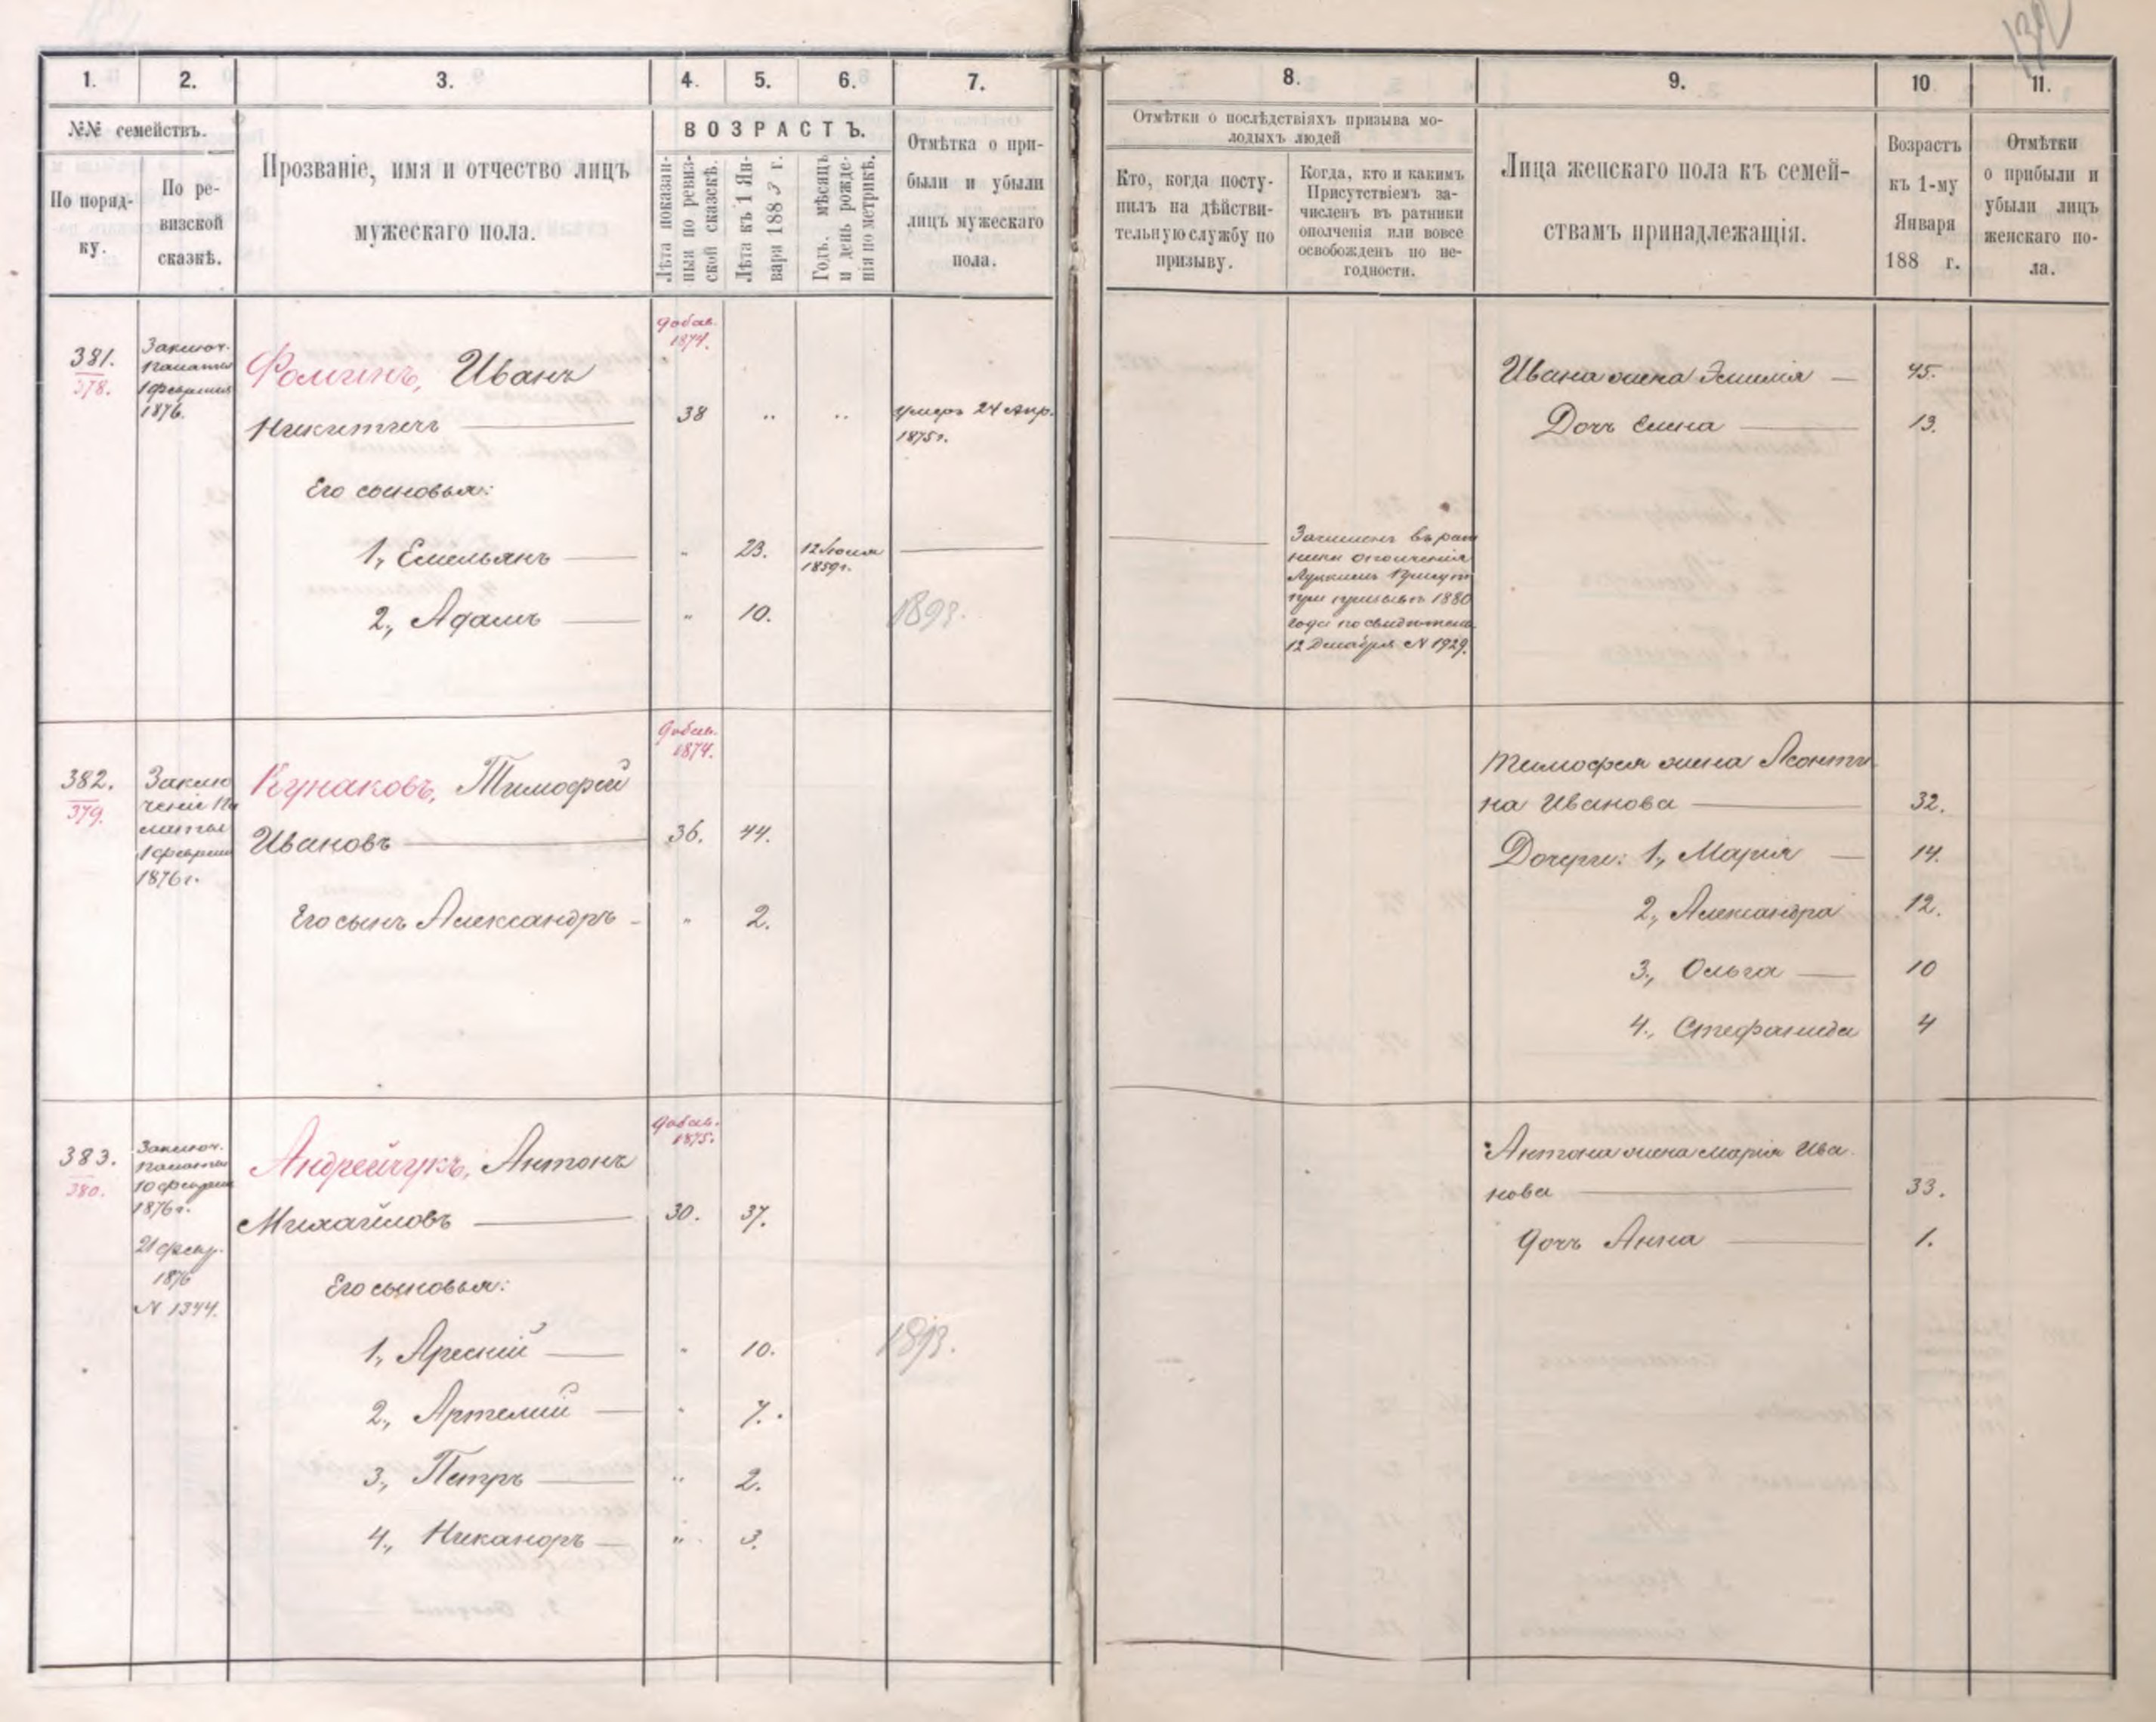 132
1.
2.
3.
4.
5.
6.
7.
№№ семействъ.
По поряд-
ку.
По ре-
визской
сказкѣ.
Прозваніе, имя и отчество лицъ
мужескаго пола.
ВОЗРАСТЪ.
Лѣта показан-
ныя по ревиз-
ской сказкѣ.
Лѣта къ 1 Ян-
варя 1883 г.
Годъ, мѣсяцъ
и день рожде-
нія по метрикѣ.
Отмѣтка о при-
были и убыли
лицъ мужескаго
пола.
381.
378.
Заключ.
Палаты
1 февраля
1876.
Фомгинъ, Иванъ
Никитичъ
добав.
1874.
38
умеръ 24 Апр.
1875 г.
Его сыновья:
1, Емельянъ
23.
12 Іюля
1859 г.
2, Адамъ
10.
1893.
382.
379.
Заклю
ченіе Па
латы
1 февраля
1876 г.
Кунаковъ, Тимофей
Ивановъ
добав.
1874.
36.
44.
Его сынъ Александръ
2.
383.
380.
Заключ.
Палаты
10 февраля
1876 г.
21 февр.
1876
N 1344.
Андрейчукъ, Антонъ
Михайловъ
добав.
1875.
30.
37.
Его сыновья:
1, Арсеній
10.
1893.
2, Артемій
7.
3, Петръ
2.
4, Никаноръ
3.
8.
9.
10
11.
Отмѣтки о послѣдствіяхъ призыва мо-
лодыхъ людей
Кто, когда посту-
пилъ на дѣйстви-
тельную службу по
призыву.
Когда, кто и какимъ
Присутствіемъ за-
численъ въ ратники
ополченія или вовсе
освобожденъ по не-
годности.
Лица женскаго пола къ семей-
ствамъ принадлежащія.
Возрастъ
къ 1-му
Января
188 г.
Отмѣтки
о прибыли и
убыли лицъ
женскаго по-
ла.
Ивана жена Эмилія
45.
Дочь Елена
13.
Зачисленъ въ рат
ники ополченія
Луцкимъ Присут
при призывѣ 1880
года по свидѣтель
12 Декабря N 1929.
Тимофея жена Леонти
на Иванова
32.
Дочери: 1, Марія
14.
2, Александра
12.
3, Ольга
10
4, Стефанида
4
Антона жена Марія Ива
нова
33.
дочь Анна
1.